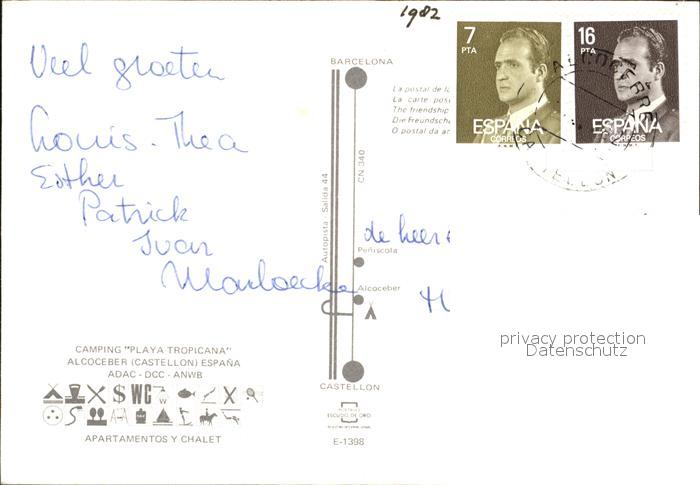 1982
Veel groeten
Louis. Thea
Esther
Patrick
Ivar
BARCELONA
La postal de la
La carte post
The friendship
Die Freundsch
O postal da am
7
PTA
ESPAÑA
CORREOS
16
PTA
ESPAÑA
CORREOS
CN 340
Autopista - Salida 44
de heer
Peñiscola
Alcoceber
CASTELLON
CAMPING "PLAYA TROPICANA"
ALCOCEBER (CASTELLON) ESPAÑA
ADAC - DCC - ANWB
$ WC
APARTAMENTOS Y CHALET
ESCUDO DE ORO
E-1398
privacy protection
Datenschutz